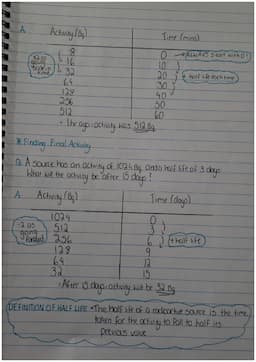 A. Activity (Bq) Time (mins)
8 0 → ALWAYS start with 0!
x2 as going backwards 16 10
32 20 + half life each time
64 30
128 40
256 50
512 60
∴ 1hr ago activity was 512 Bq
* Finding Final Activity
Q. A source has an activity of 1024 Bq and a half life of 3 days.
What will the activity be after 15 days?
A. Activity (Bq) Time (days)
1024 0
÷2 as going forward 512 3
256 6 + half life
128 9
64 12
32 15
∴ After 15 days activity will be 32 Bq
DEFINITION OF HALF LIFE • The half life of a radioactive source is the time
taken for the activity to fall to half its
previous value